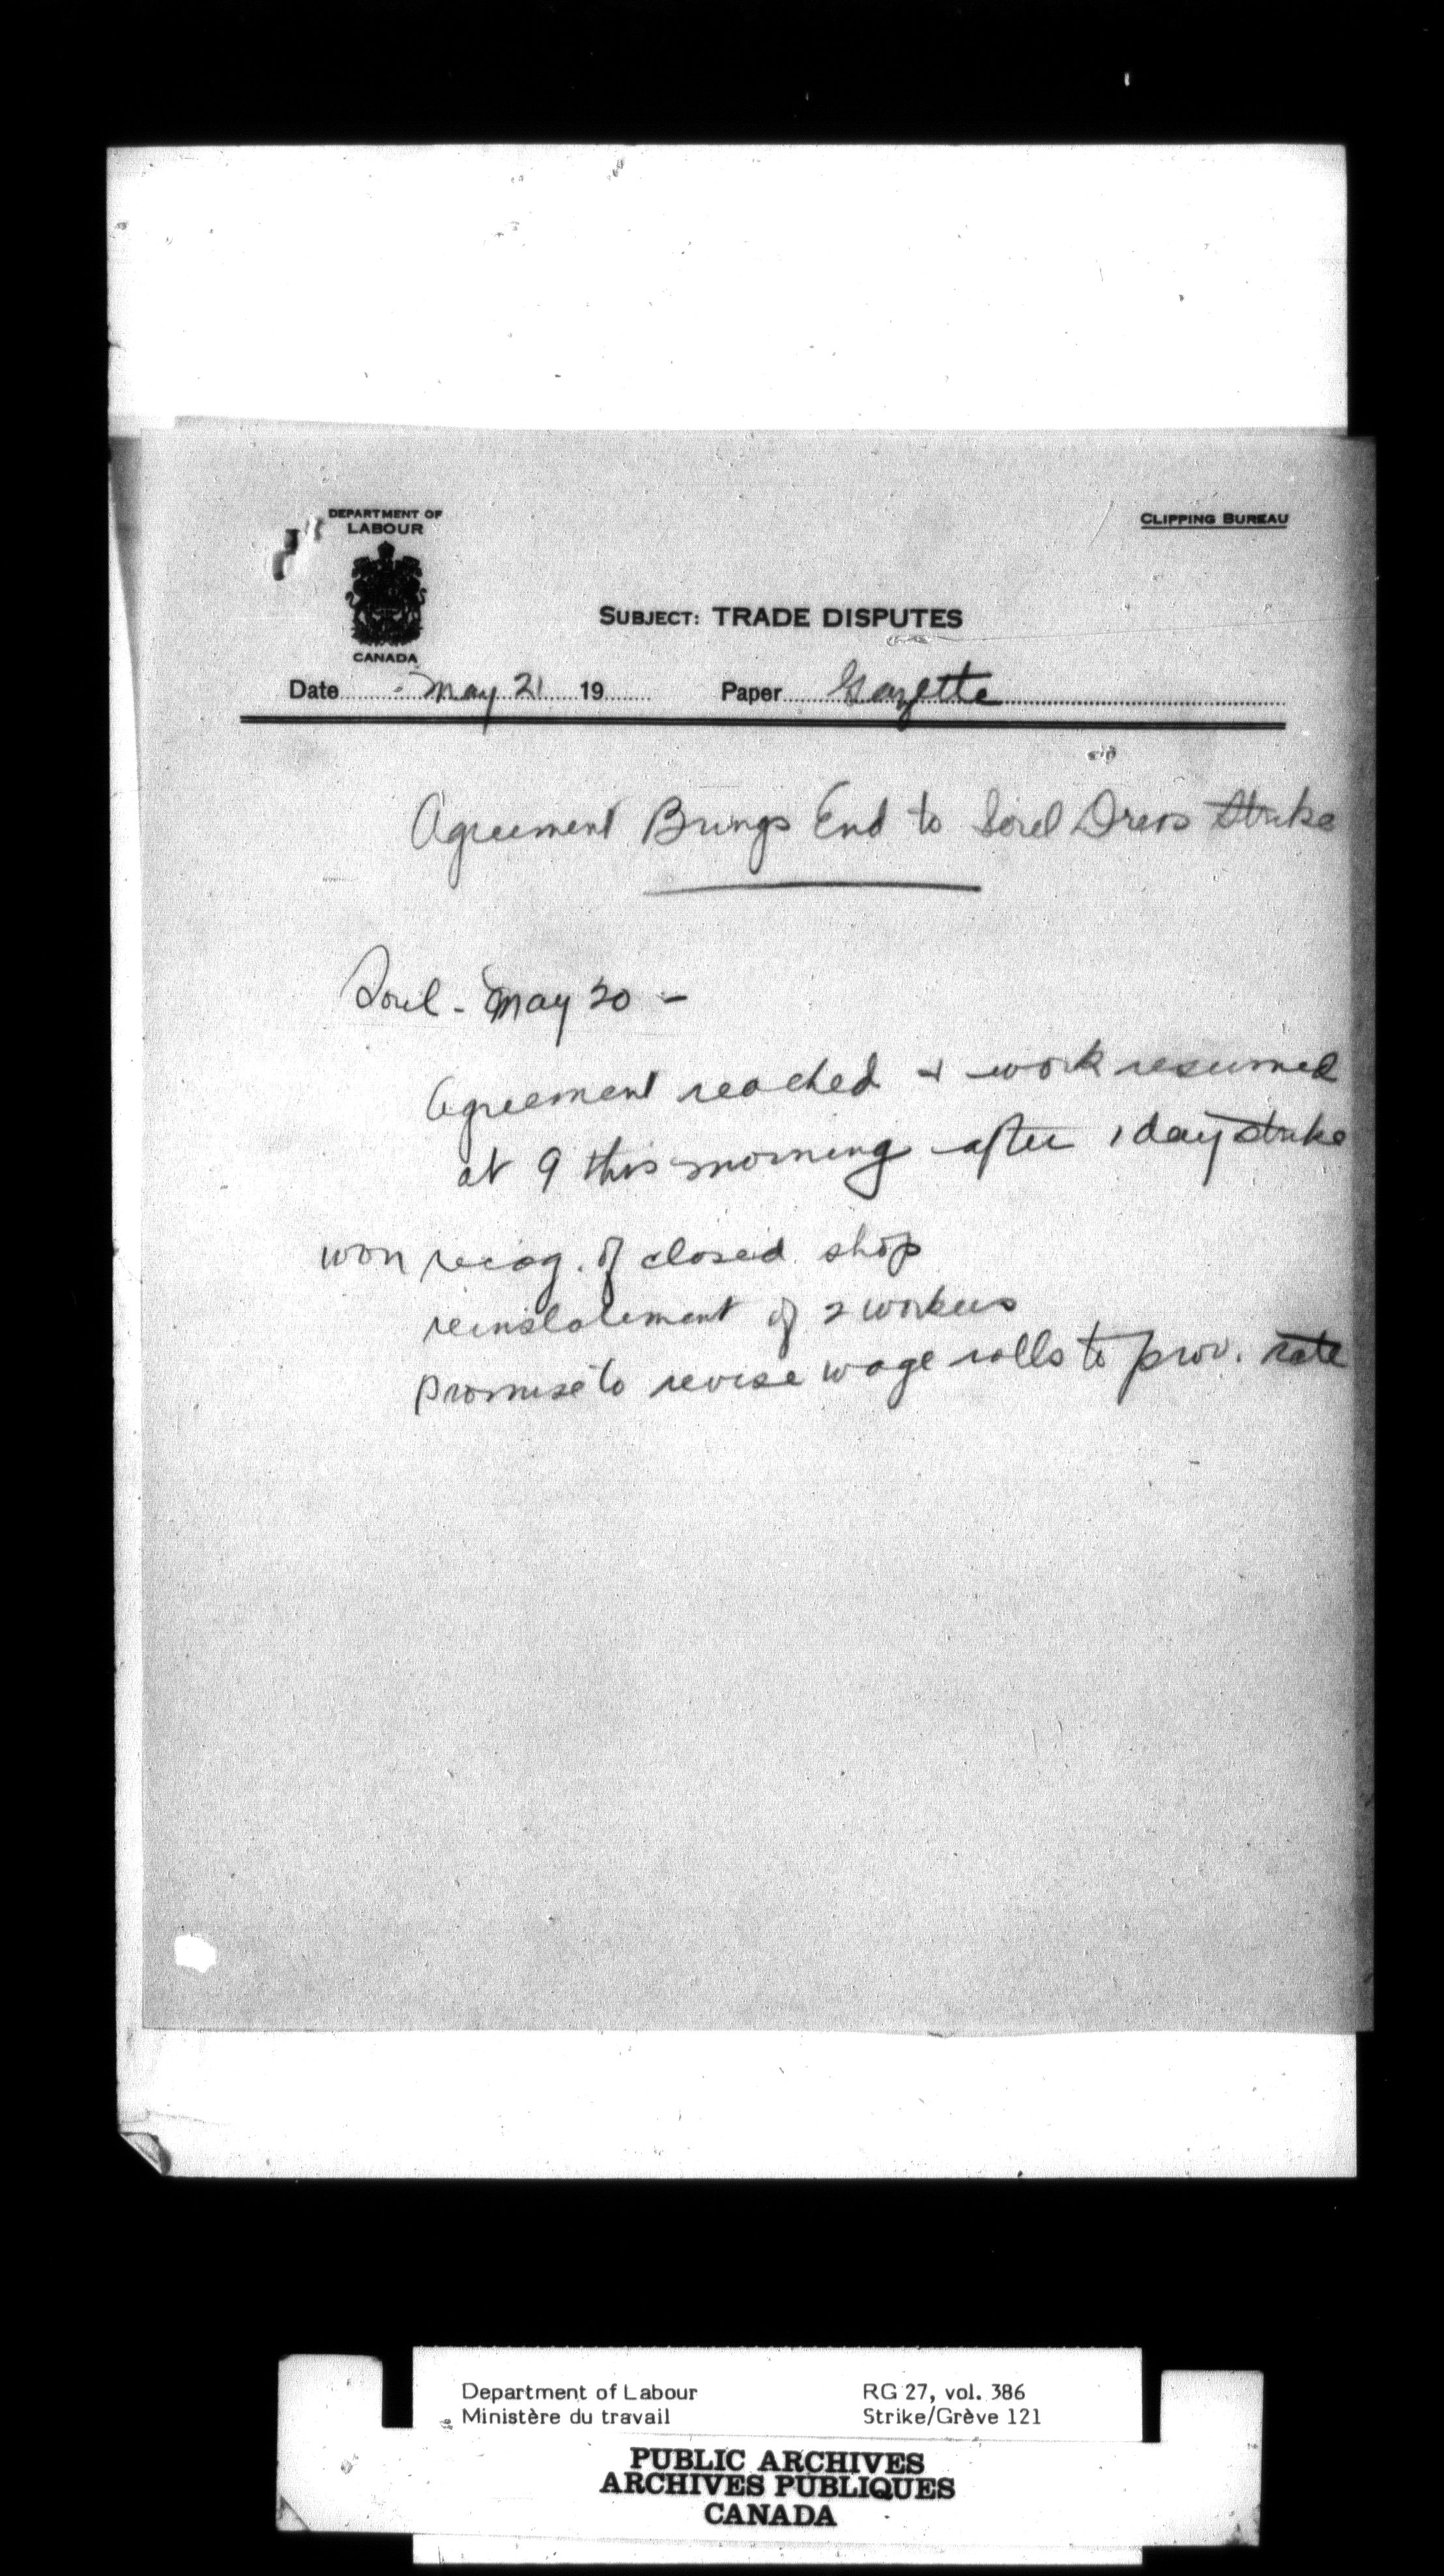 DEPARTMENT OF
LABOUR
CANADA
CLIPPING BUREAU
SUBJECT: TRADE DISPUTES
Date May 21 19 Paper Gazette
Agreement Brings End to Sorel Dress Strike
Sorel - May 20 -
Agreement reached + work resumed
at 9 this morning after 1 day strike
won recog. of closed shop
reinstatement of 2 workers
promise to revise wage rolls to prov. rate
Department of Labour
Ministère du travail
RG 27, vol. 386
Strike/Grève 121
PUBLIC ARCHIVES
ARCHIVES PUBLIQUES
CANADA